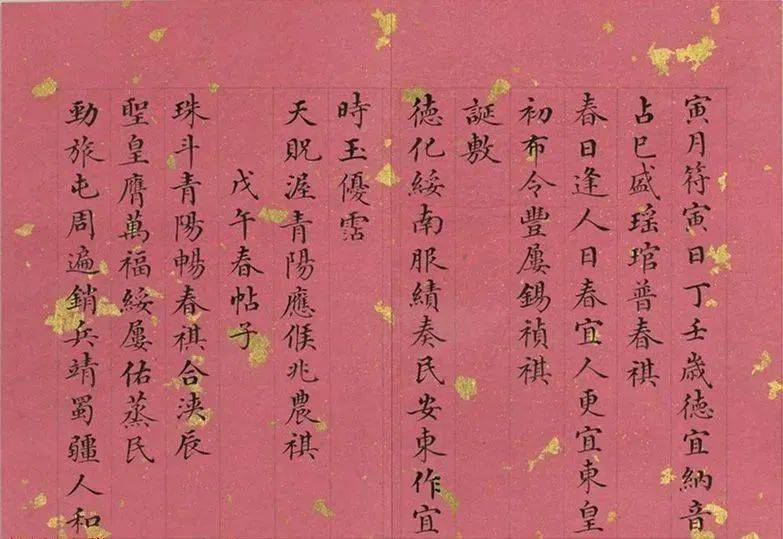 寅月符寅日丁壬歲德宜納音
占巳盛瑶琯普春祺
春日逢人日春宜人更宜東皇
初布令豐屢錫禎祺
誕敷
德化綏南服績奏民安東作宜
時玉優霑
天貺渥青陽應候兆農祺
戊午春帖子
珠斗青陽暢春祺合浹辰
聖皇膺萬福綏屢佑蒸民
勁旅屯周遍銷兵靖蜀疆人和